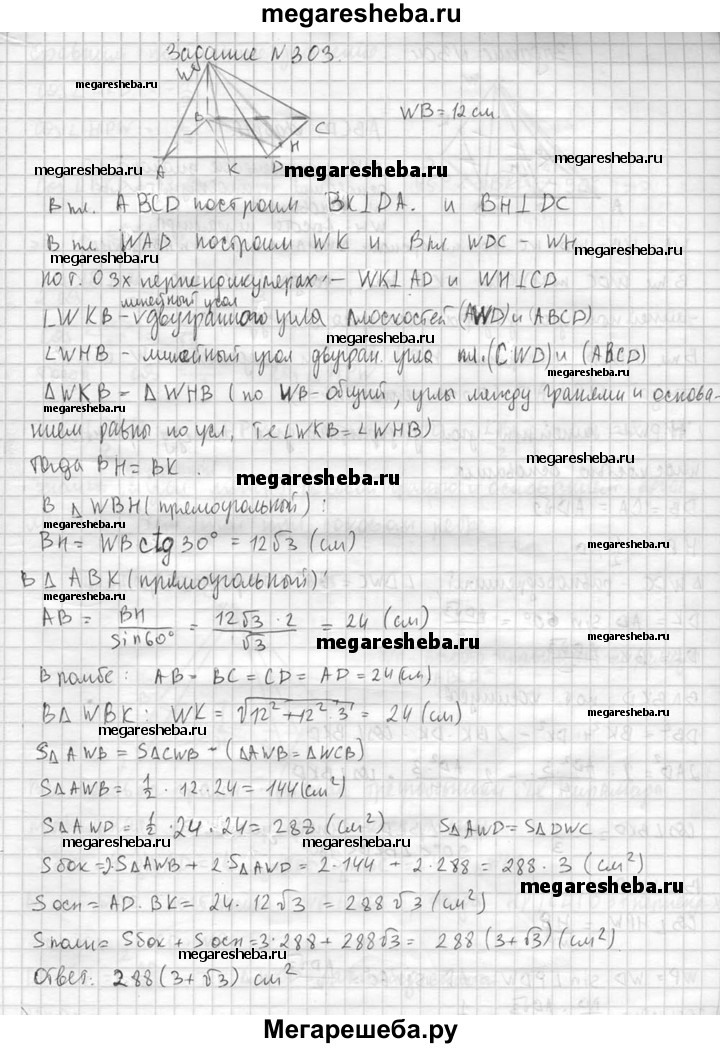 megaresheba.ru
Задание N 303.
W
megaresheba.ru
B
C
WB = 12 см
H
megaresheba.ru
megaresheba.ru
A
K
D
megaresheba.ru
В пл. ABCD построим BK⊥DA. и BH⊥DC
В пл. WAD построим WK и В пл WDC - WH
megaresheba.ru
megaresheba.ru
по т. о 3х перпендикулерах: - WK⊥AD и WH⊥CD
линейный угол
∠WKB - V двугранного угла плоскостей (AWD) и (ABCD)
megaresheba.ru
∠WHB - линейный угол двугран. угла пл. (CWD) и (ABCD)
megaresheba.ru
megaresheba.ru
ΔWKB = ΔWHB (по WB - общий, углы между гранями и основа-
megaresheba.ru
нием равны по усл, те ∠WKB = ∠WHB)
megaresheba.ru
Тогда BH = BK.
megaresheba.ru
В Δ WBH (прямоугольный):
megaresheba.ru
BH = WB ctg 30° = 12√3 (см)
megaresheba.ru
В Δ ABK (прямоугольный):
megaresheba.ru
AB = BH / sin 60° = 12√3 · 2 / √3 = 24 (см)
megaresheba.ru
megaresheba.ru
В ромбе: AB = BC = CD = AD = 24 (см)
megaresheba.ru
В Δ WBK: WK = √12² + 12² · 3 = 24 (см)
megaresheba.ru
SΔAWB = SΔCWB - (ΔAWB = ΔWCB)
megaresheba.ru
SΔAWB = 1/2 · 12 · 24 = 144 (см²)
megaresheba.ru
SΔAWD = 1/2 · 24 · 24 = 288 (см²) SΔAWD = SΔDWC
megaresheba.ru
megaresheba.ru
Sбок = 2SΔAWB + 2 SΔAWD = 2 · 144 + 2 · 288 = 288 · 3 (см²)
megaresheba.ru
Sосн = AD · BK = 24 · 12√3 = 288√3 (см²)
Sполн = Sбок + Sосн = 3 · 288 + 288√3 = 288 (3+√3) (см²)
megaresheba.ru
Ответ: 288 (3+√3) см²
Мегарешеба.ру